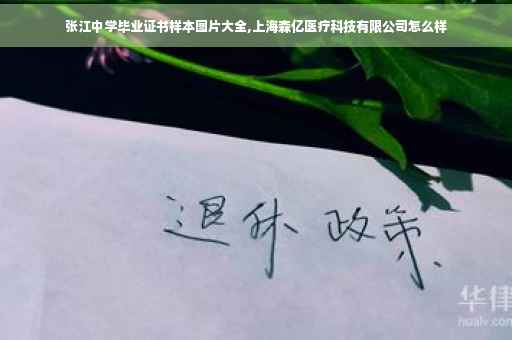 张江中学毕业证书样本图片大全,上海森亿医疗科技有限公司怎么样
退休 政策
华律
hualv.com